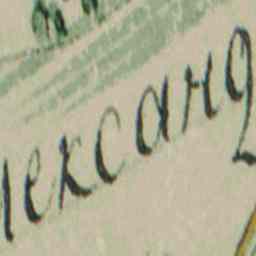 лександ